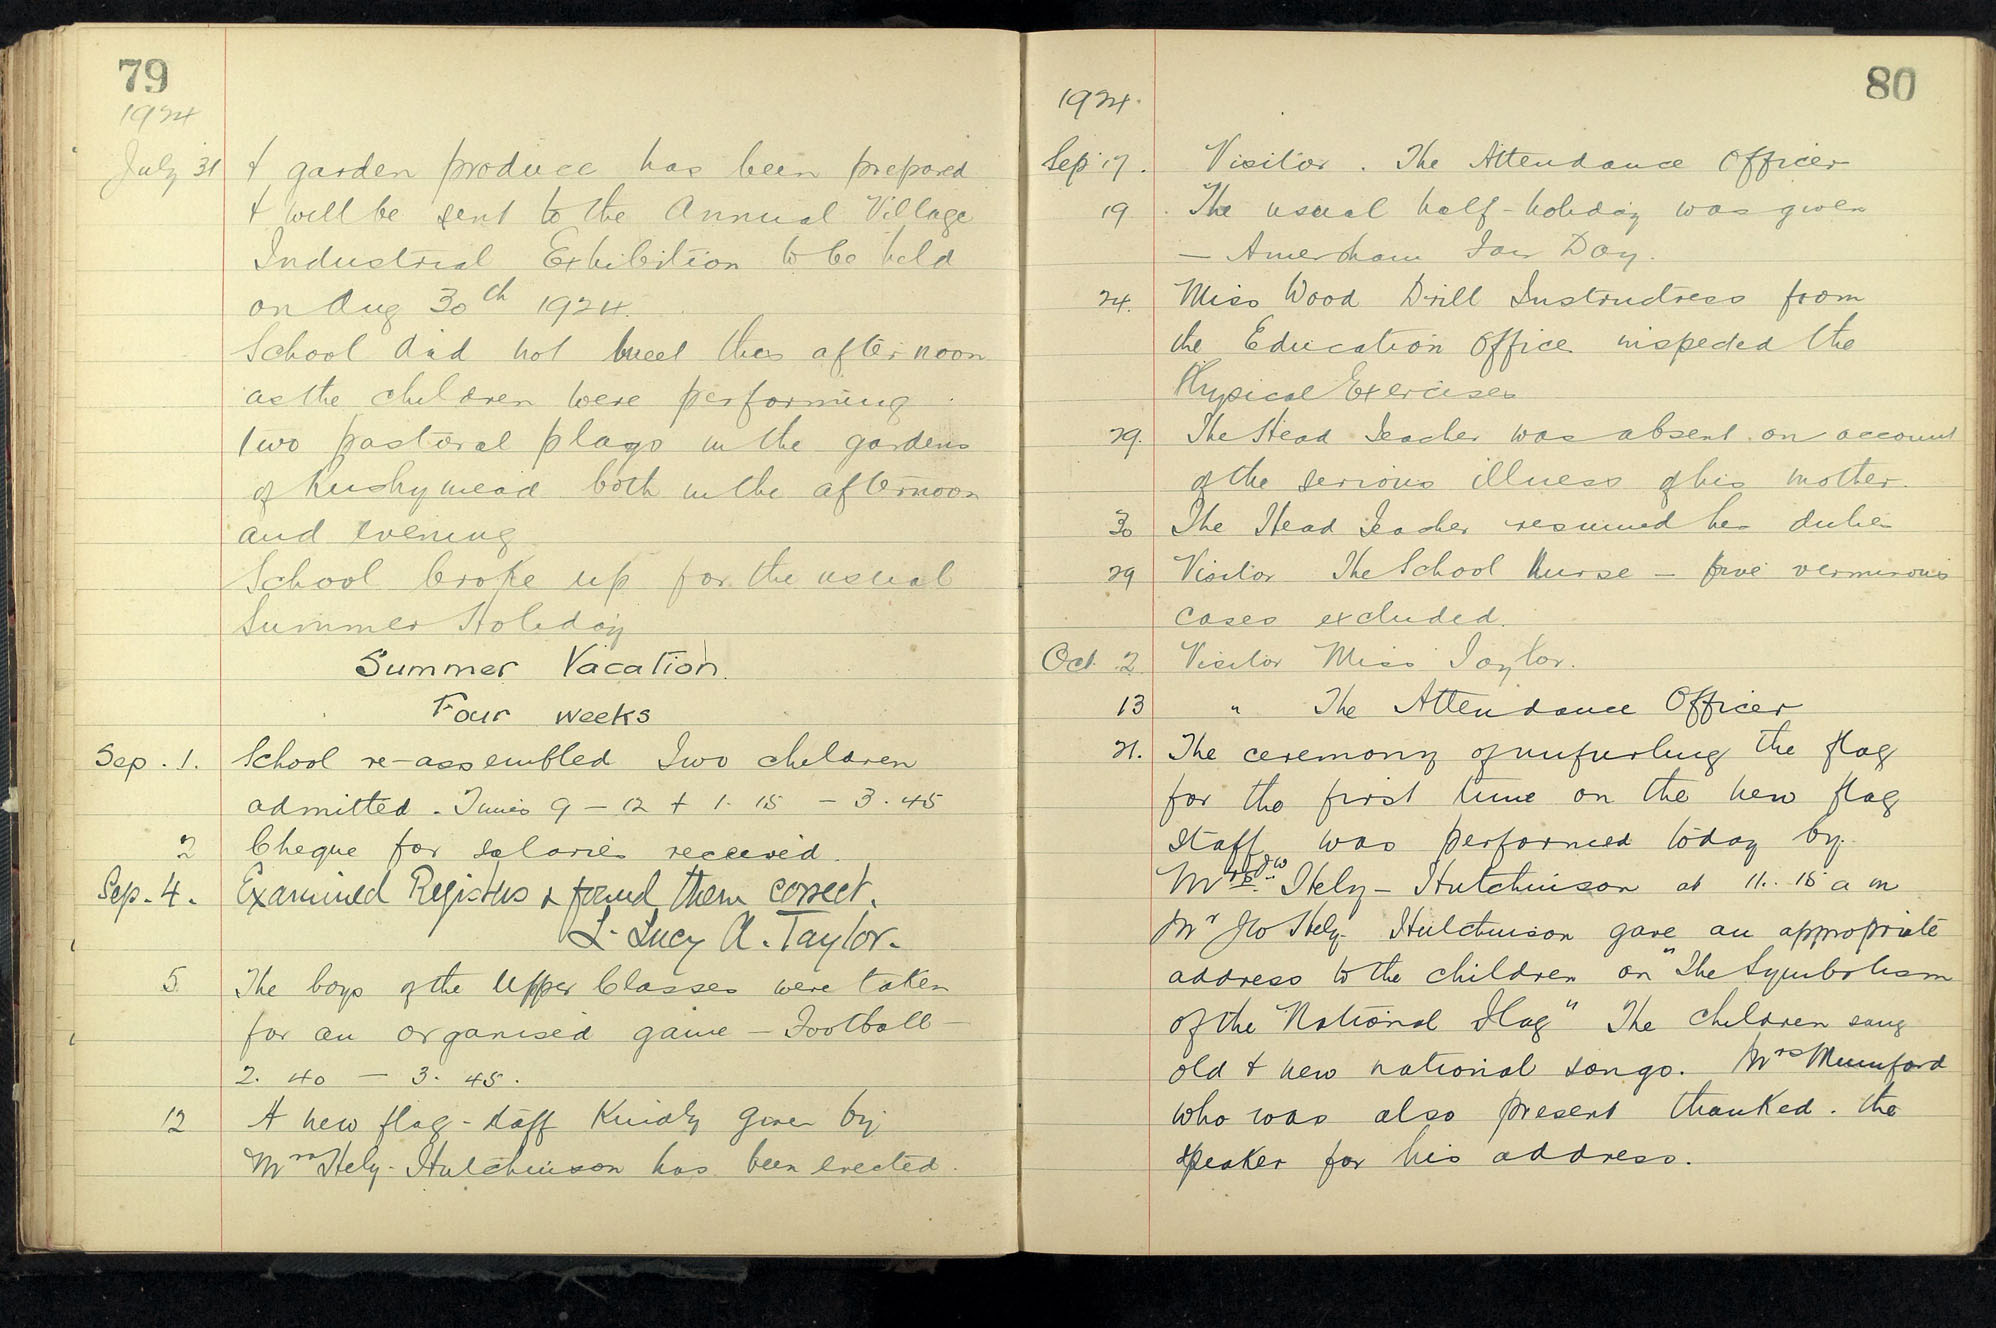 79
1924
July 31 & garden produce has been prepared
& will be sent to the Annual Village
Industrial Exhibition to be held
on Aug 30th 1924.
School did not meet this afternoon
as the children were performing
two pastoral plays in the gardens
of Rushymead both in the afternoon
and evening
School broke up for the usual
Summer Holiday
Summer Vacation.
Four weeks
Sep. 1. School re-assembled Two children
admitted. Times 9 - 12 & 1.15 - 3.45
2 Cheque for salaries received.
Sep. 4. Examined Registers & found them correct.
L. Lucy A. Taylor.
5 The boys of the Upper Classes were taken
for an organised game - Football -
2.40 - 3.45.
12 A new flag-staff kindly given by
Mrs Hely-Hutchinson has been erected.
80
1924.
Sep 17. Visitor. The Attendance Officer
19. The usual half-holiday was given
- Amersham Fair Day.
24. Miss Wood Drill Instructress from
the Education Office inspected the
Physical Exercises
29. The Head Teacher was absent on account
of the serious illness of his mother.
30 The Head Teacher resumed his duties
29 Visitor The School Nurse - five verminous
cases excluded.
Oct 2 Visitor Miss Taylor.
13 " The Attendance Officer
21. The ceremony of unfurling the flag
for the first time on the new flag
staff was performed today by
Mrs Hely-Hutchinson at 11.15 a m
Mr Hely-Hutchinson gave an appropriate
address to the children on "The Symbolism
of the National Flag" The children sang
old & new national songs. Mrs Mumford
who was also present thanked the
speaker for his address.